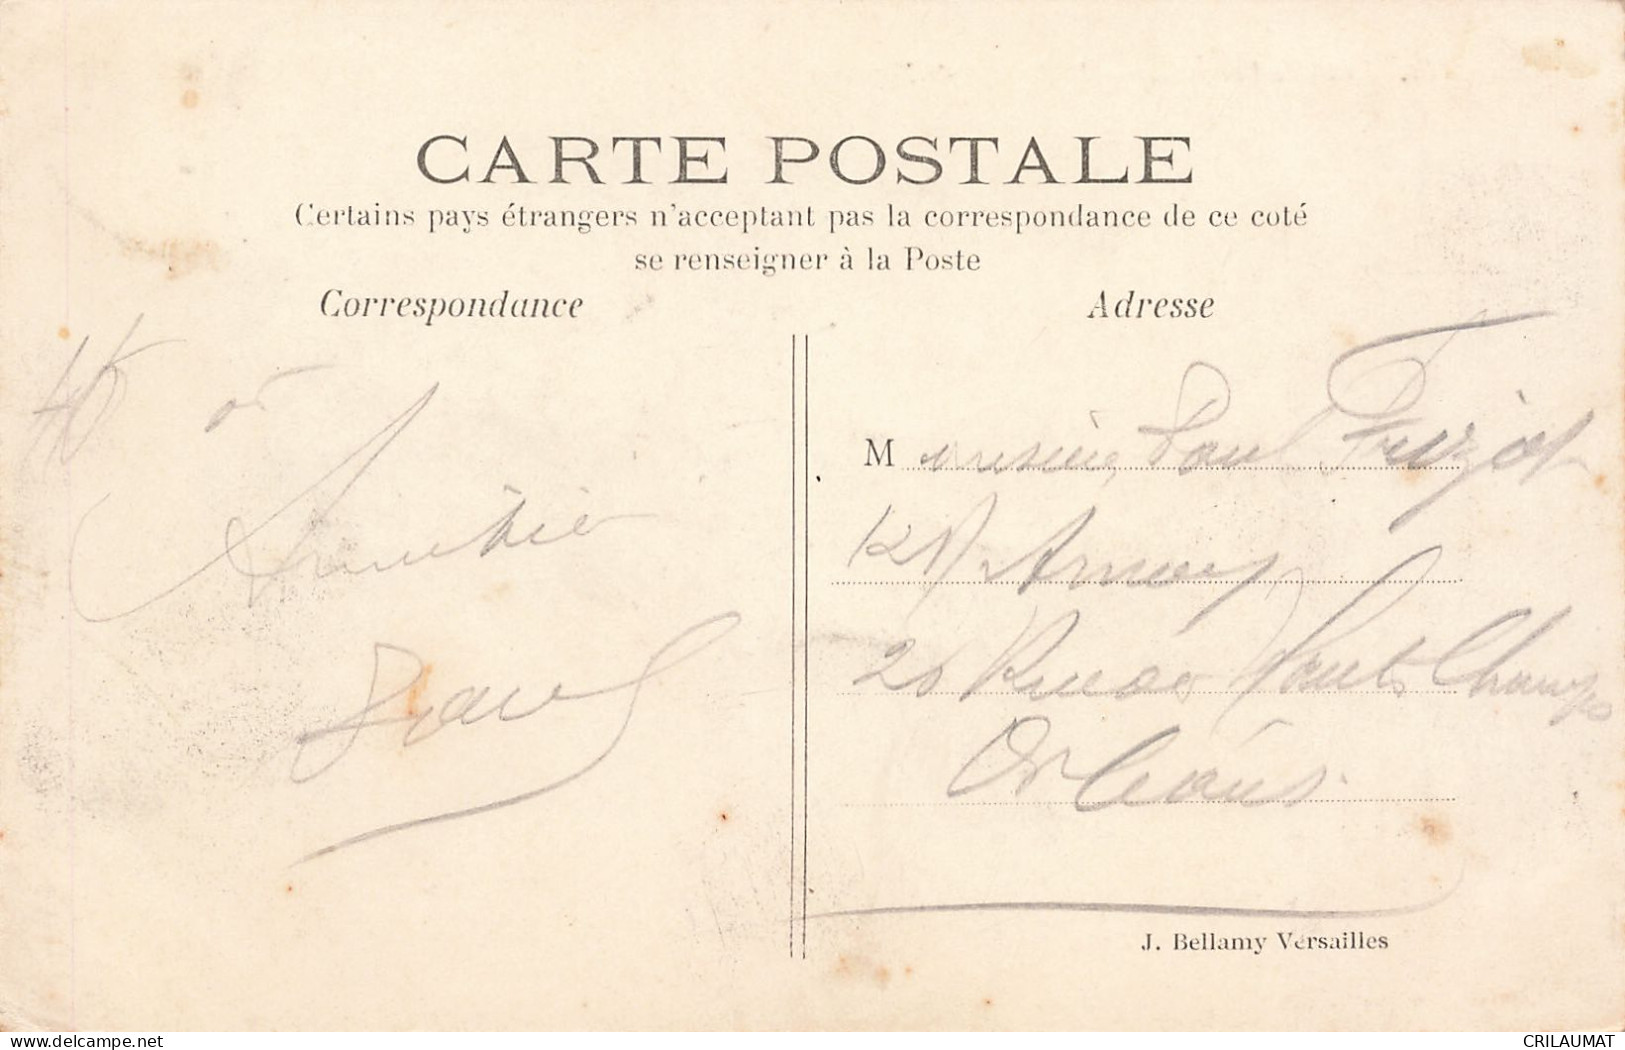 CARTE POSTALE
Certains pays étrangers n'acceptant pas la correspondance de ce coté
se renseigner à la Poste
Correspondance
Adresse
Amitié
Paul
Monsieur Paul
20 Rue des Hauts Champs
Orléans
J. Bellamy Versailles
delcampe.net
CRILAUMAT